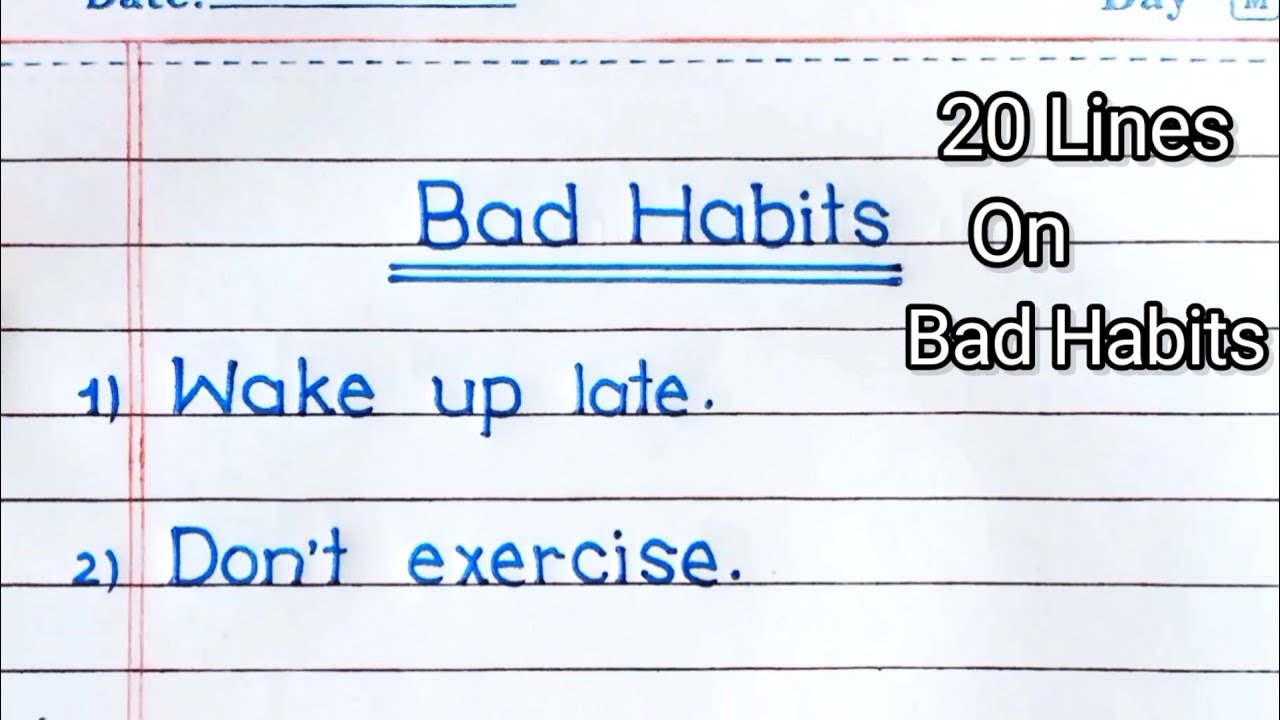 Date: Day M
20 Lines
On
Bad Habits
Bad Habits
1) Wake up late.
2) Don't exercise.